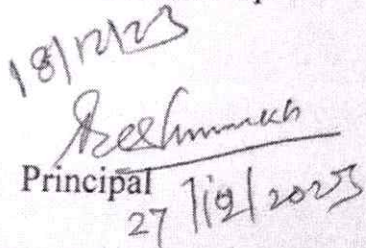 18/12/23
Principal
27/12/2023